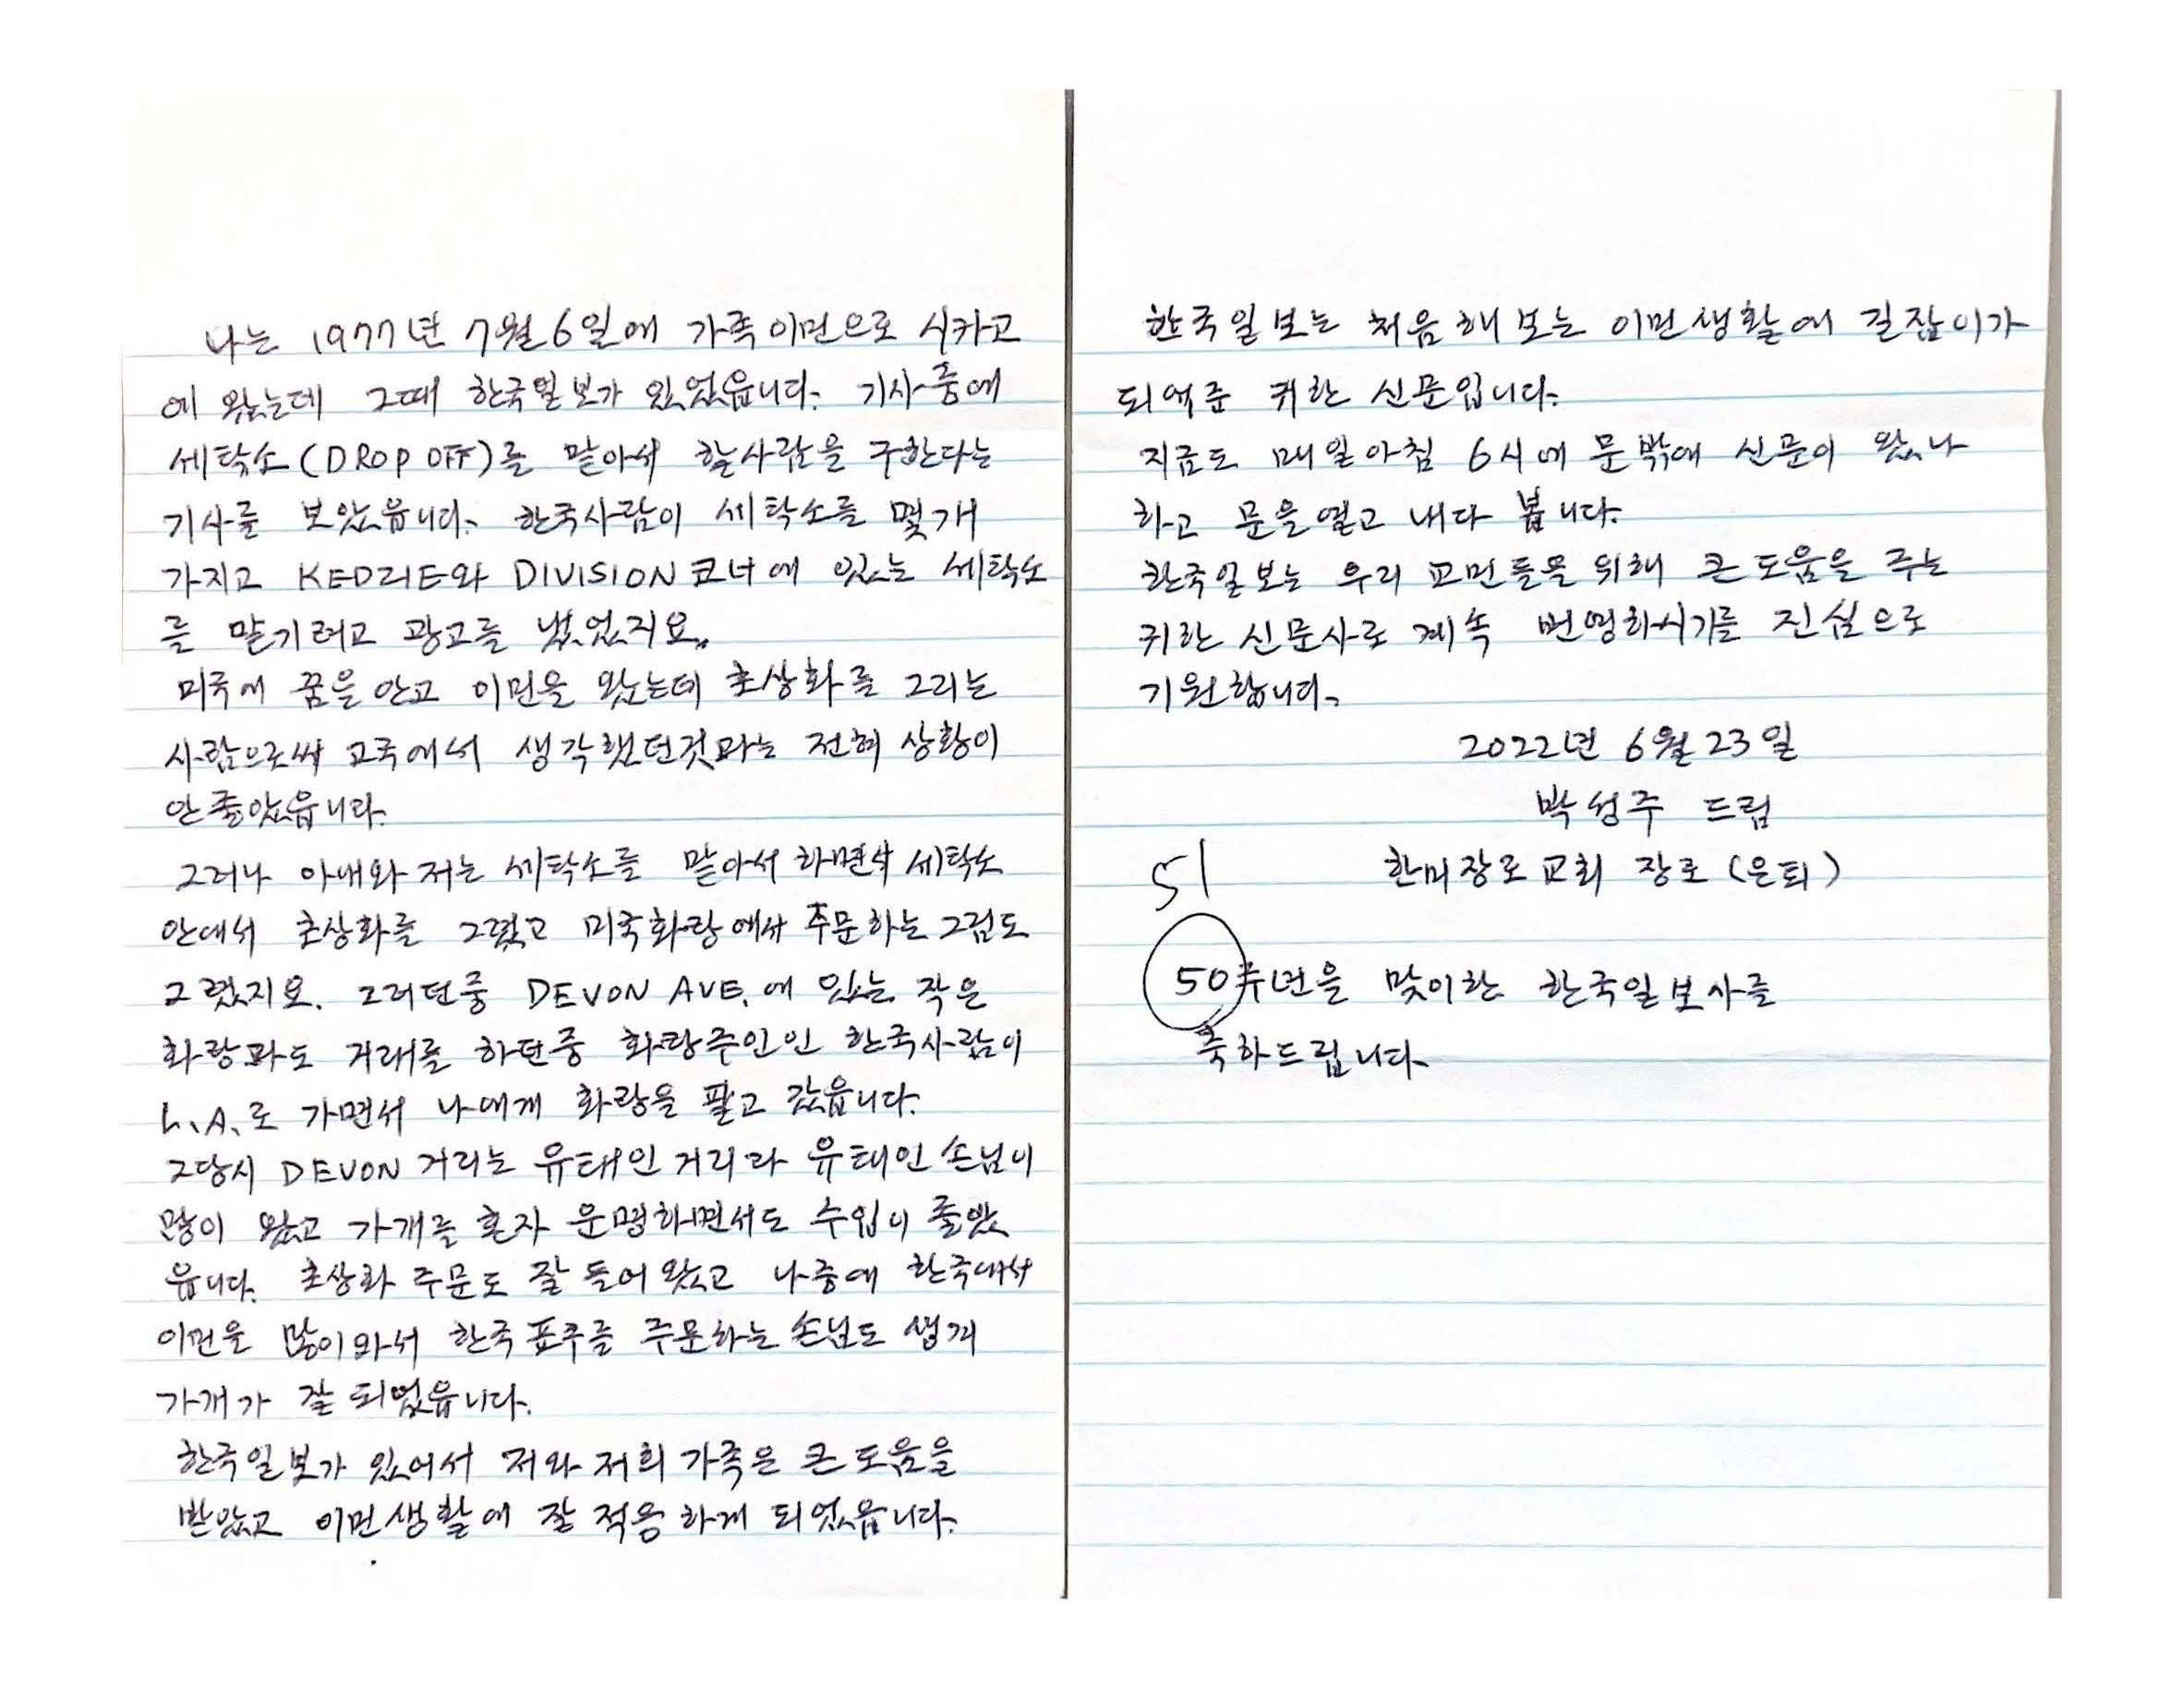 나는 1977년 7월 6일에 가족이민으로 시카고
에 왔는데 그때 한국일보가 있었읍니다. 기사중에
세탁소(DROP OFF)를 맡아서 할사람을 구한다는
기사를 보았읍니다. 한국사람이 세탁소를 몇개
가지고 KEDZIE와 DIVISION 코너에 있는 세탁소
를 맡기려고 광고를 냈었지요.
미국에 꿈을 안고 이민을 왔는데 초상화를 그리는
사람으로써 고국에서 생각했던것과는 전혀 상황이
안좋았읍니다.
그러나 아내와 저는 세탁소를 맡아서 하면서 세탁소
안에서 초상화를 그렸고 미국화랑에서 주문하는 그림도
그렸지요. 그러던중 DEVON AVE.에 있는 작은
화랑과도 거래를 하던중 화랑주인인 한국사람이
L.A.로 가면서 나에게 화랑을 팔고 갔읍니다.
그당시 DEVON 거리는 유태인 거리라 유태인 손님이
많이 왔고 가개를 혼자 운영하면서도 수입이 좋았
읍니다. 초상화 주문도 잘 들어왔고 나중에 한국에서
이민을 많이와서 한국 표구를 주문하는 손님도 생겨
가개가 잘 되었읍니다.
한국일보가 있어서 저와 저희 가족은 큰 도움을
받았고 이민생활에 잘 적응하게 되었읍니다.
한국일보는 처음해보는 이민생활에 길잡이가
되여준 귀한 신문입니다.
지금도 매일아침 6시에 문밖에 신문이 왔나
하고 문을열고 내다 봅니다.
한국일보는 우리 교민들을 위해 큰도움을 주는
귀한 신문사로 계속 번영하시기를 진심으로
기원합니다.
2022년 6월 23일
박성주 드림
한미장로교회 장로 (은퇴)
51
50주년을 맞이한 한국일보사를
축하드립니다.